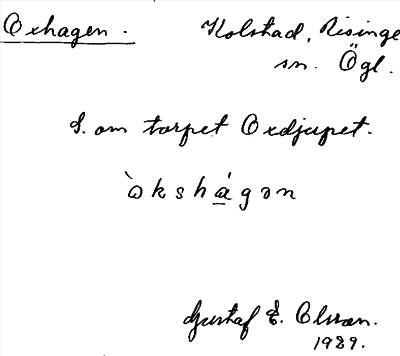 Oxhagen. Kolstad, Risinge
sn. Ögl.
S. om torpet Oxdjupet.
ò̀kshá̱gən
Gustaf E. Olsson.
1929.